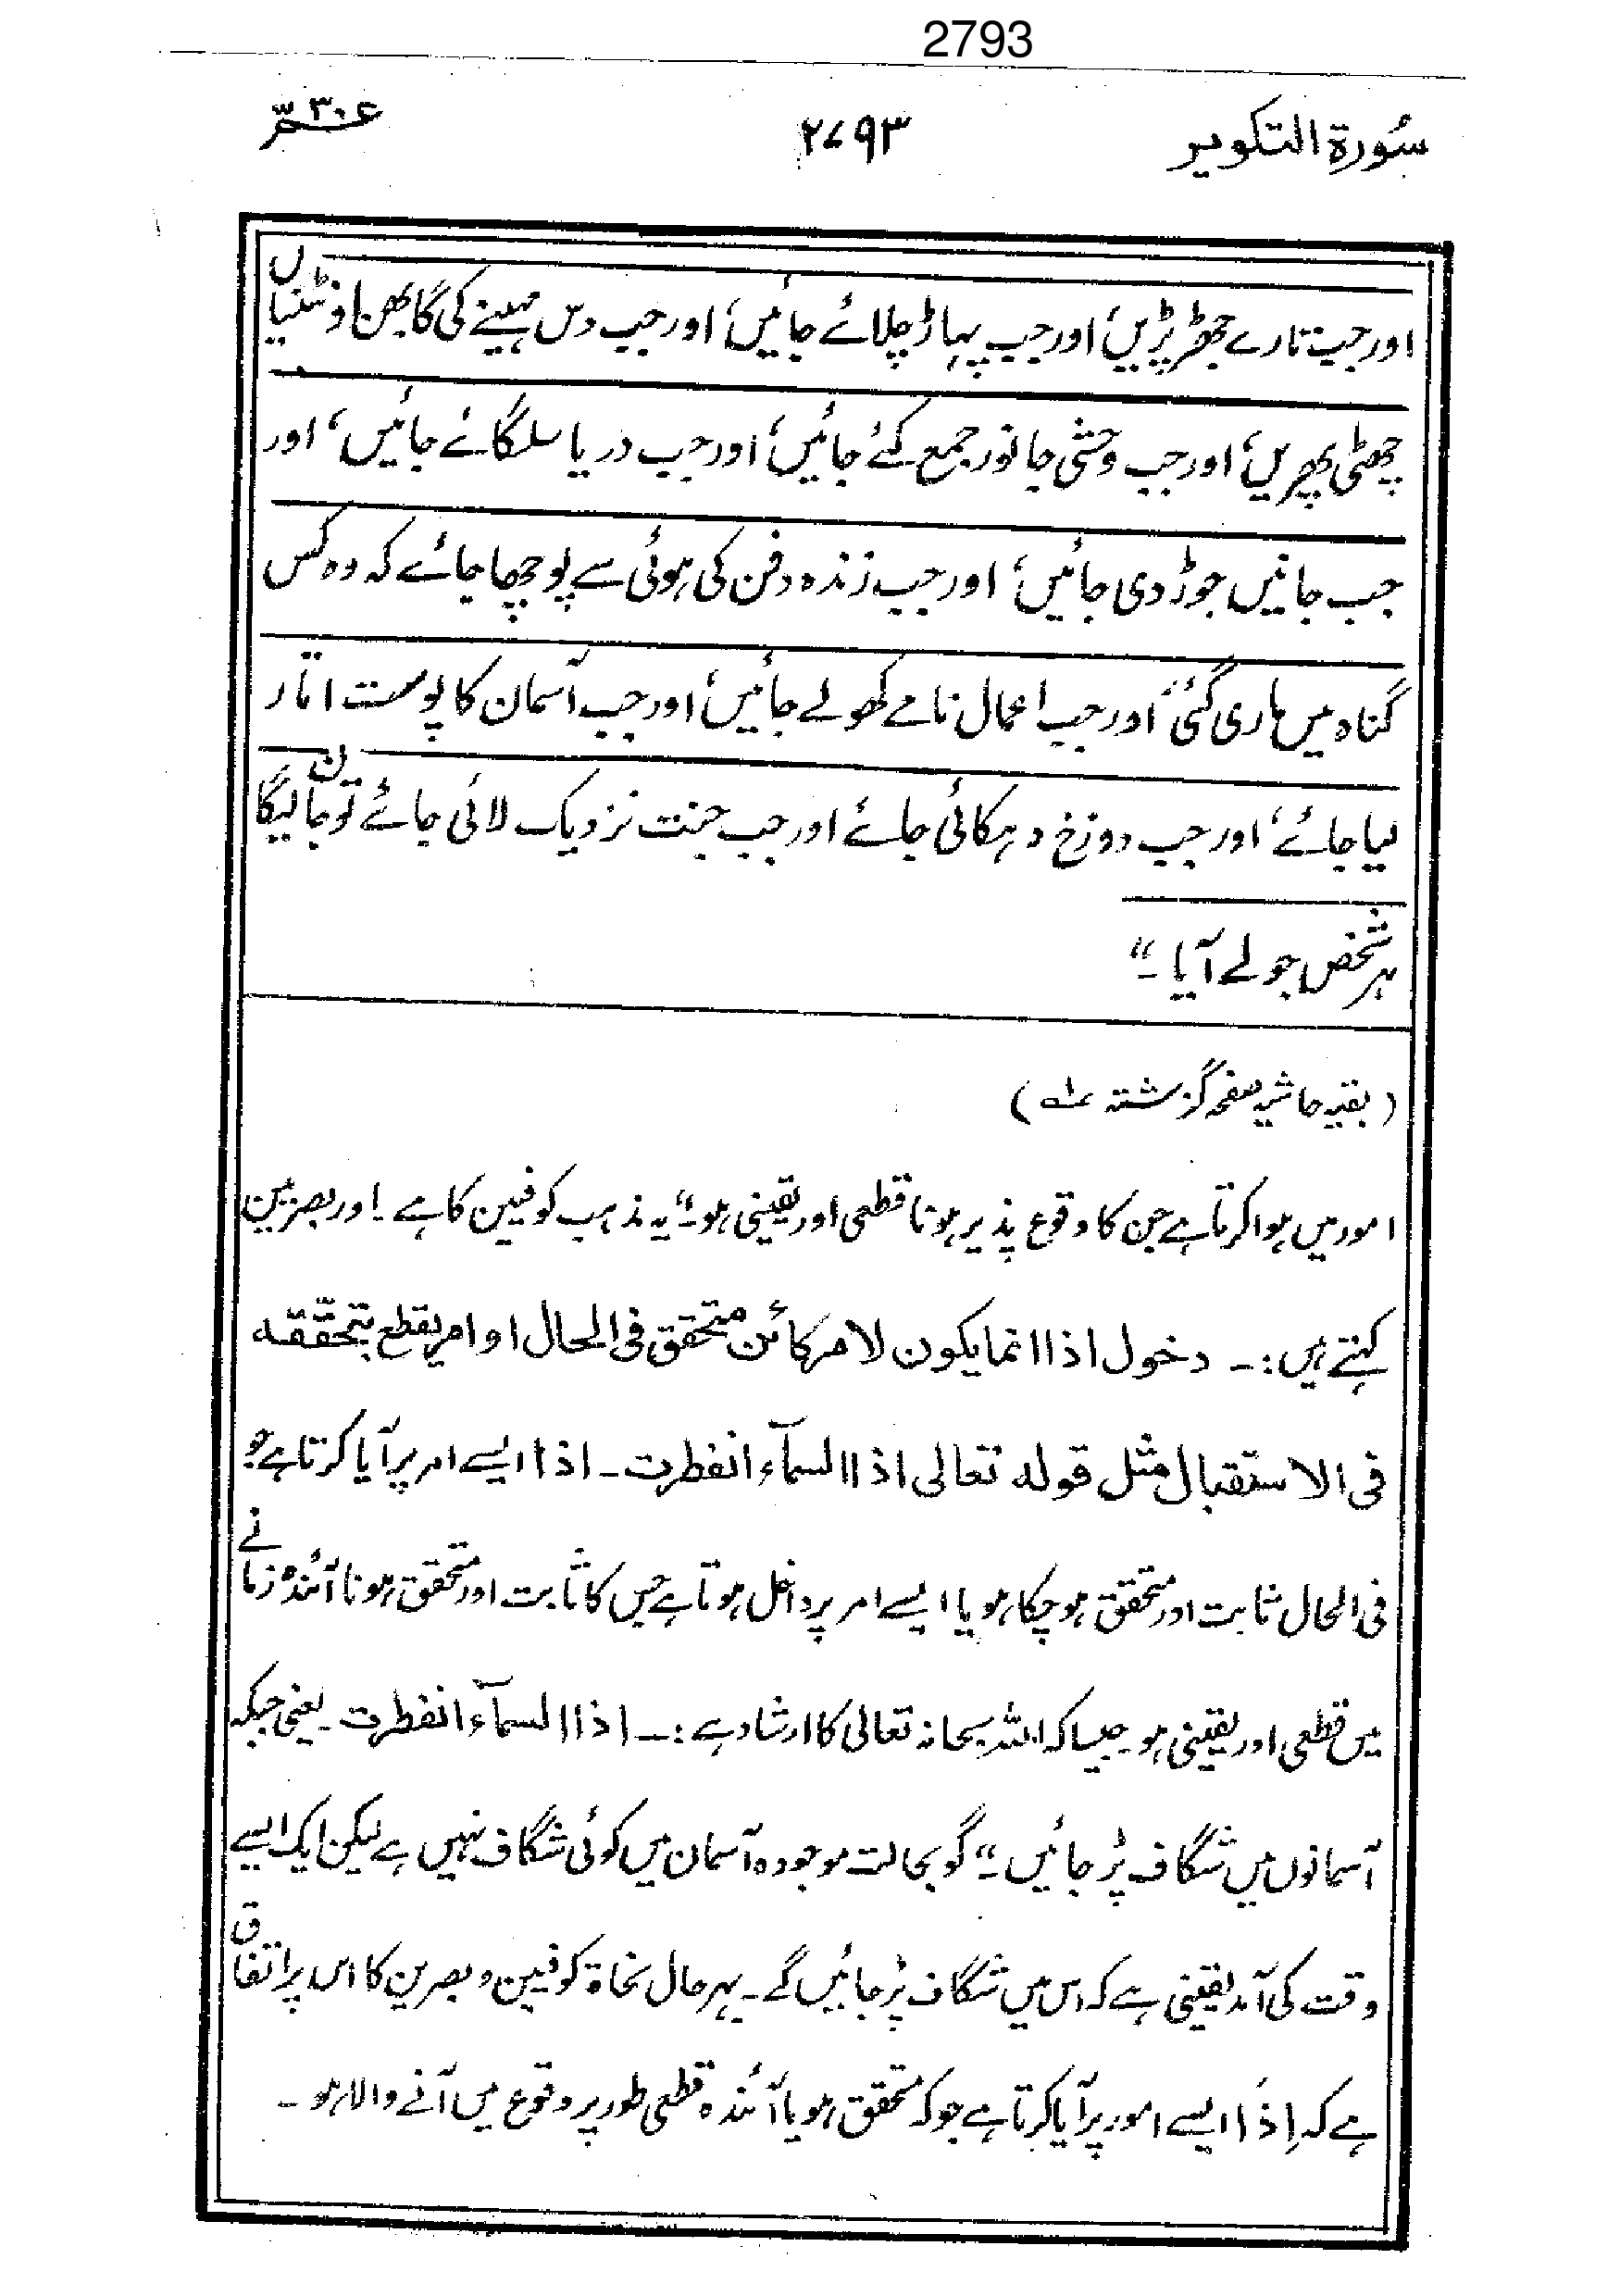 2793
سُورة التکویر ۲۷۹۳ عمّ ۳۰
اور جب تارے جھڑ پڑیں، اور جب پہاڑ چلائے جائیں، اور جب دس مہینے کی گابھن اونٹنیاں
چھٹی پھریں، اور جب وحشی جانور جمع کئے جائیں، اور جب دریا سلگائے جائیں، اور
جب جانیں جوڑ دی جائیں، اور جب زندہ دفن کی ہوئی سے پوچھا جائے کہ وہ کس
گناہ میں ماری گئی، اور جب اعمال نامے کھولے جائیں، اور جب آسمان کا پوست اتار
لیا جائے، اور جب دوزخ دہکائی جائے اور جب جنت نزدیک لائی جائے تو جان لیگا
ہر شخص جو لے آیا۔“
(بقیہ حاشیہ صفحہ گزشتہ ۱ؔ)
امور میں ہوا کرتا ہے جن کا وقوع پذیر ہونا قطعی اور یقینی ہو۔“ یہ مذہب کوفیین کا ہے۔ اور بصریین
کہتے ہیں:۔ دخول اذا انما یکون لامر کائن متحقق فی الحال او امر یقطع بتحقّقہ
فی الاستقبال مثل قولہ تعالی اذا السمآء انفطرت۔ اذا ایسے امر پر آیا کرتا ہے جو
فی الحال ثابت اور متحقق ہو چکا ہو یا ایسے امر پر داخل ہوتا ہے جس کا ثابت اور متحقق ہونا آئندہ زمانے
میں قطعی اور یقینی ہو جیسا کہ اللہ سبحانہ تعالی کا ارشاد ہے:۔ اذا السمآء انفطرت۔ یعنی جبکہ
آسمانوں میں شگاف پڑ جائیں۔“ گو بحالت موجودہ آسمان میں کوئی شگاف نہیں ہے لیکن ایک ایسے
وقت کی آمد یقینی ہے کہ اس میں شگاف پڑ جائیں گے۔ بہر حال نحاۃ کوفیین و بصرین کا اس پر اتفاق
ہے کہ اِذَا ایسے امور پر آیا کرتا ہے جو کہ متحقق ہو یا آئندہ قطعی طور پر وقوع میں آنے والا ہو۔